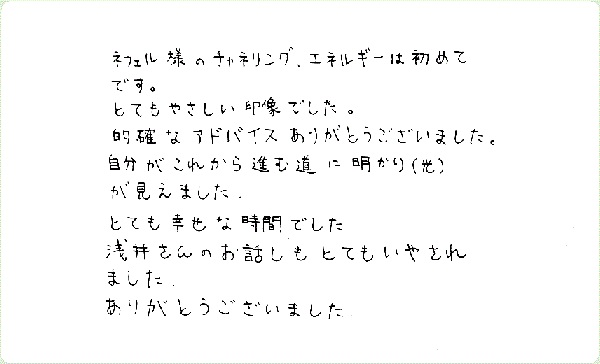 ネフェル様のチャネリング、エネルギーは初めて
です。
とてもやさしい印象でした。
的確なアドバイスありがとうございました。
自分がこれから進む道に明かり(光)
が見えました.
とても幸せな時間でした
浅井さんのお話しもとてもいやされ
ました.
ありがとうございました.